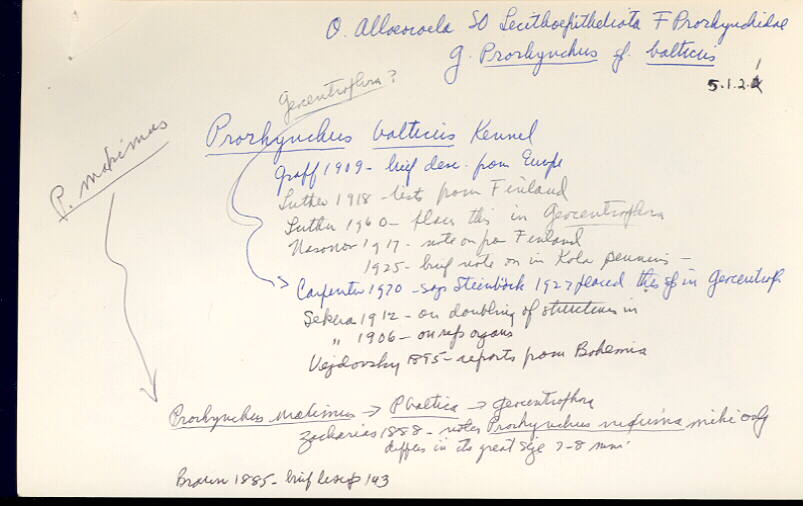 O. Alloeocoela SO Lecithoepitheliata F Prorhynchidae
g. Prorhynchus sp. balticus
5.1.2.
Geocentrophora?
P. maximus
Prorhynchus balticus Kennel
Graff 1909 - brief desc. from Europe
Luther 1918 - lists from Finland
Luther 1960 - places this in Geocentrophora
Nasonov 1917 - note on from Finland
1925 - brief note on in Kola peninsu -
Carpenter 1970 - says Steinböck 1927 placed this sp in Geocentroph.
Sekera 1912 - on doubling of structures in
" 1906 - on rep organs
Vejdovsky 1895 - reports from Bohemia
Prorhynchus maximus → P baltica → Geocentrophora
Zacharias 1888 - notes Prorhynchus only
differs in its great size 7-8 mm
Braun 1885 - brief desc p 143